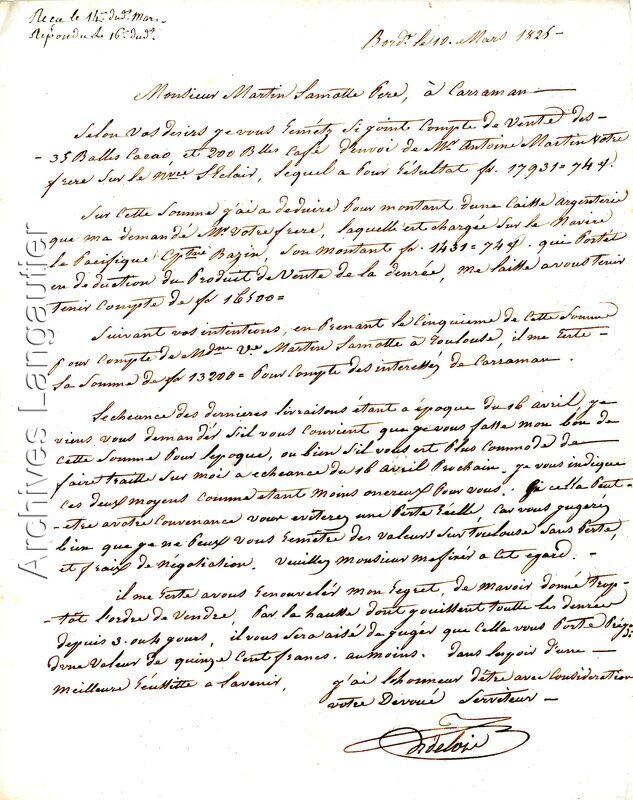 Reçu le 14 dud. Mars.
Répondu le 16 dud.
Bordx. le 10. Mars 1825 -
Monsieur Martin Lamotte Pere, à Carraman -
Selon vos desirs je vous remétz Si joint Compte de Vente des -
- 35 Balles Cacao, et 200 Blles Café d'envoi de Mr. Antoine Martin votre
frere Sur le Nvre St Clair, Lequel a pour résultat fr. 17931 = 74 c.
Sur Cette Somme j'ai a déduire pour montant d'une Caisse Argenterie
que ma demandé Mr. votre frere, laquelle est chargée Sur le Navire
le Pacifique Cptne Bazin, Son montant fr. 1431 = 74 c. qui Portés
en déduction du Produit de Vente de la denrée, me laisse a vous tenir
tenir Compte de fr 16500 =
Suivant vos intentions, en Prenant le Cinquieme de Cette Somme
pour Compte de Mdme Ve Martin Lamotte a Toulouse, il me reste -
La Somme de fr 13200 = Pour Compte des interessés de Carraman.
Lecheance des dernieres livraisons étant a époque du 16 avril, je
viens vous demander S'il vous convient que je vous fasse mon bon de
Cette Somme Pour lepoque, ou bien S'il vous est Plus Commode de
faire traitte Sur moi a echeance du 16 avril Prochain. je vous indique
Ces deux moyens Comme étant moins onereux Pour vous. Si cella Peut
- etre a votre Convenance vous eviterez une Perte réelle, car vous jugeréz
bien que je ne Peux vous remettre des valeurs Sur Toulouse Sans Perte,
et fraix de négotiation. Veuillez Monsieur me fixér a Cet egard. -
il me reste a vous renouvelér mon regret, de mavoir donné trop -
- tôt l'ordre de Vendre, Par la hausse dont jouissent toutte les denrées
depuis 3. ou 4 jours, il vous Sera aisé de jugér que Cella vous Porte Préju
dice
d'une Valeur de quinze Cent francs. au moins. dans l'espoir d'une -
meilleure réussitte a l'avenir,
j'ai l'honneur d'être avec Consideration
votre Devoué Serviteur -
Archives Langautier